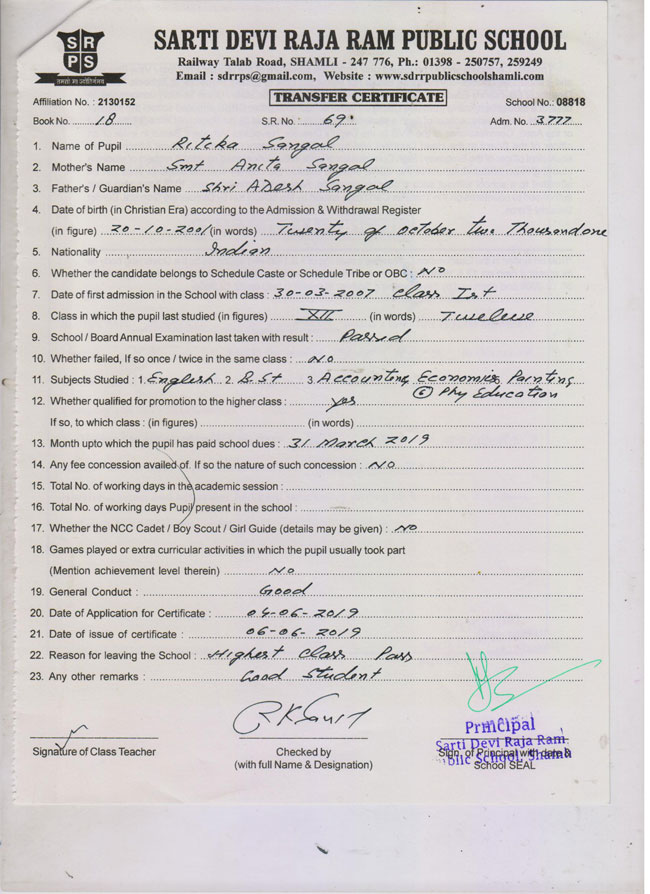 SRPS
तमसो मा ज्योतिर्गमय
SARTI DEVI RAJA RAM PUBLIC SCHOOL
Railway Talab Road, SHAMLI - 247 776, Ph.: 01398 - 250757, 259249
Email : sdrrps@gmail.com, Website : www.sdrrpublicschoolshamli.com
TRANSFER CERTIFICATE
Affiliation No. : 2130152 School No.: 08818
Book No. 18 S.R. No. : 69 Adm. No. 3777
1. Name of Pupil Riteka Sangal
2. Mother's Name Smt Anita Sangal
3. Father's / Guardian's Name Shri ADesh Sangal
4. Date of birth (in Christian Era) according to the Admission & Withdrawal Register
(in figure) 20-10-2001 (in words) Twenty of October two Thousand one
5. Nationality Indian
6. Whether the candidate belongs to Schedule Caste or Schedule Tribe or OBC : NO
7. Date of first admission in the School with class : 30-03-2007 Class Ist
8. Class in which the pupil last studied (in figures) XII (in words) Tweleve
9. School / Board Annual Examination last taken with result : Passed
10. Whether failed, If so once / twice in the same class : No
11. Subjects Studied : 1. English 2. B.St 3. Accounting, Economics, Painting
© Phy Education
12. Whether qualified for promotion to the higher class : yes
If so, to which class : (in figures) (in words)
13. Month upto which the pupil has paid school dues : 31 March 2019
14. Any fee concession availed of. If so the nature of such concession : NO
15. Total No. of working days in the academic session :
16. Total No. of working days Pupil present in the school :
17. Whether the NCC Cadet / Boy Scout / Girl Guide (details may be given) : No
18. Games played or extra curricular activities in which the pupil usually took part
(Mention achievement level therein) No
19. General Conduct : Good
20. Date of Application for Certificate : 04-06-2019
21. Date of issue of certificate : 06-06-2019
22. Reason for leaving the School : Highest Class Pass
23. Any other remarks : Good Student
Principal
Sarti Devi Raja Ram
Public School, Shamli
Signature of Class Teacher Checked by Sign. of Principal with date &
(with full Name & Designation) School SEAL